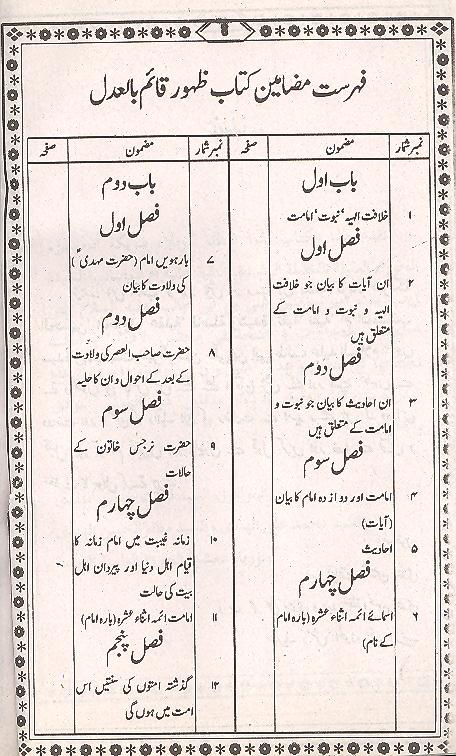 فہرست مضامین کتاب ظہور قائم بالعدل
نمبر شمار مضمون صفحہ
باب اول
۱ خلافت الہیہ، نبوت، امامت
فصل اول
۲ ان آیات کا بیان جو خلافت
الہیہ و نبوت و امامت کے
متعلق ہیں
فصل دوم
۳ ان احادیث کا بیان جو نبوت و
امامت کے متعلق ہیں
فصل سوم
۴ امامت اور دوازدہ امام کا بیان
(آیات)
۵ احادیث
فصل چہارم
۶ اسمائے ائمہ اثناء عشرہ (بارہ امام
کے نام)
نمبر شمار مضمون صفحہ
باب دوم
فصل اول
۷ بارہویں امام (حضرت مہدیؑ)
کی ولادت کا بیان
فصل دوم
۸ حضرت صاحب العصر کی ولادت
کے بعد کے احوال و ان کا حلیہ
فصل سوم
۹ حضرت نرجس خاتون کے
حالات
فصل چہارم
۱۰ زمانہ غیبت میں امام زمانہ کا
قیام اہل دنیا اور پیردان اہل
بیت کی حالت
۱۱ امامت ائمہ اثناء عشرہ (بارہ امام)
فصل پنجم
۱۲ گذشتہ امتوں کی سنتیں اس
امت میں ہوں گی